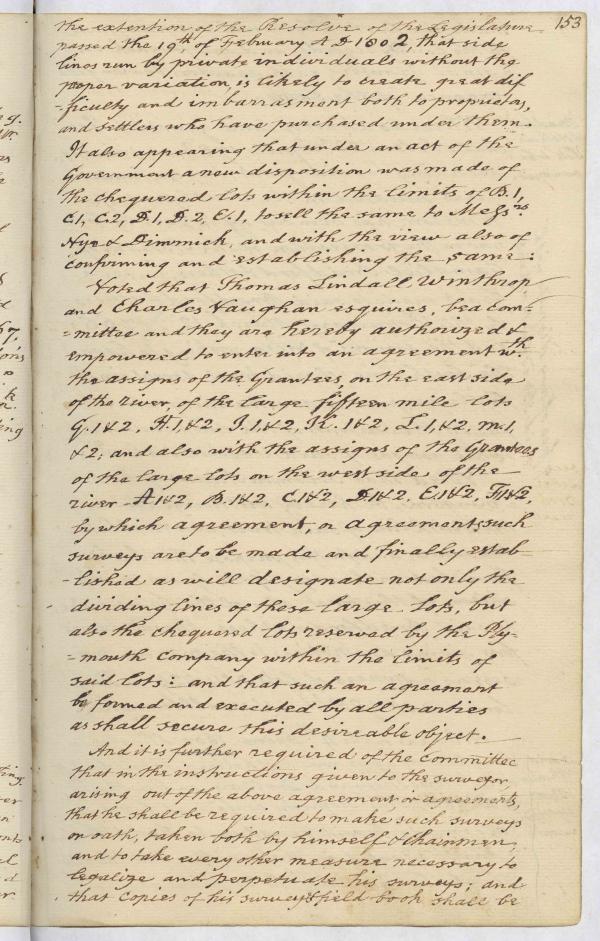 153
the extention of the Resolve of the Legislature
passed the 19th of February A D 1802, that side
lines run by private individuals without the
proper variation, is likely to create great dif
-ficulty and imbarrasment both to proprietors,
and settlers who have purchased under them.
It also appearing that under an act of the
Government a new disposition was made of
the chequered lots within the limits of B.1,
C.1, C.2, D.1, D.2, E.1, to sell the same to Messrs
Nye & Dimmick, and with the view also of
confirming and establishing the same:
Voted that Thomas Lindall Winthrop
and Charles Vaughan esquires, be a com=
=mittee and they are hereby authorized &
empowered to enter into an agreement wth
the assigns of the Grantees, on the east side
of the river, of the large fifteen mile lots
G.1&2, H.1&2, I.1&2, K.1&2, L.1,&2, M.1,
&2; and also with the assigns of the Grantees
of the large lots on the west side of the
river - A1&2, B.1&2, C.1&2, D.1&2, E.1&2, F.1&2,
by which agreement, or agreements, such
surveys are to be made and finally estab-
-lished as will designate not only the
dividing lines of these large lots, but
also the chequered lots reserved by the Ply-
=mouth Company within the limits of
said lots: and that such an agreement
be formed and executed by all parties
as shall secure this desireable object.
And it is further required of the committee
that in the instructions given to the surveyor
arising out of the above agreement or agreements,
that he shall be required to make such surveys
on oath, taken both by himself & chainmen,
and to take every other measure necessary to
legalize and perpetuate his surveys; and
that copies of his surveys & field book shall be